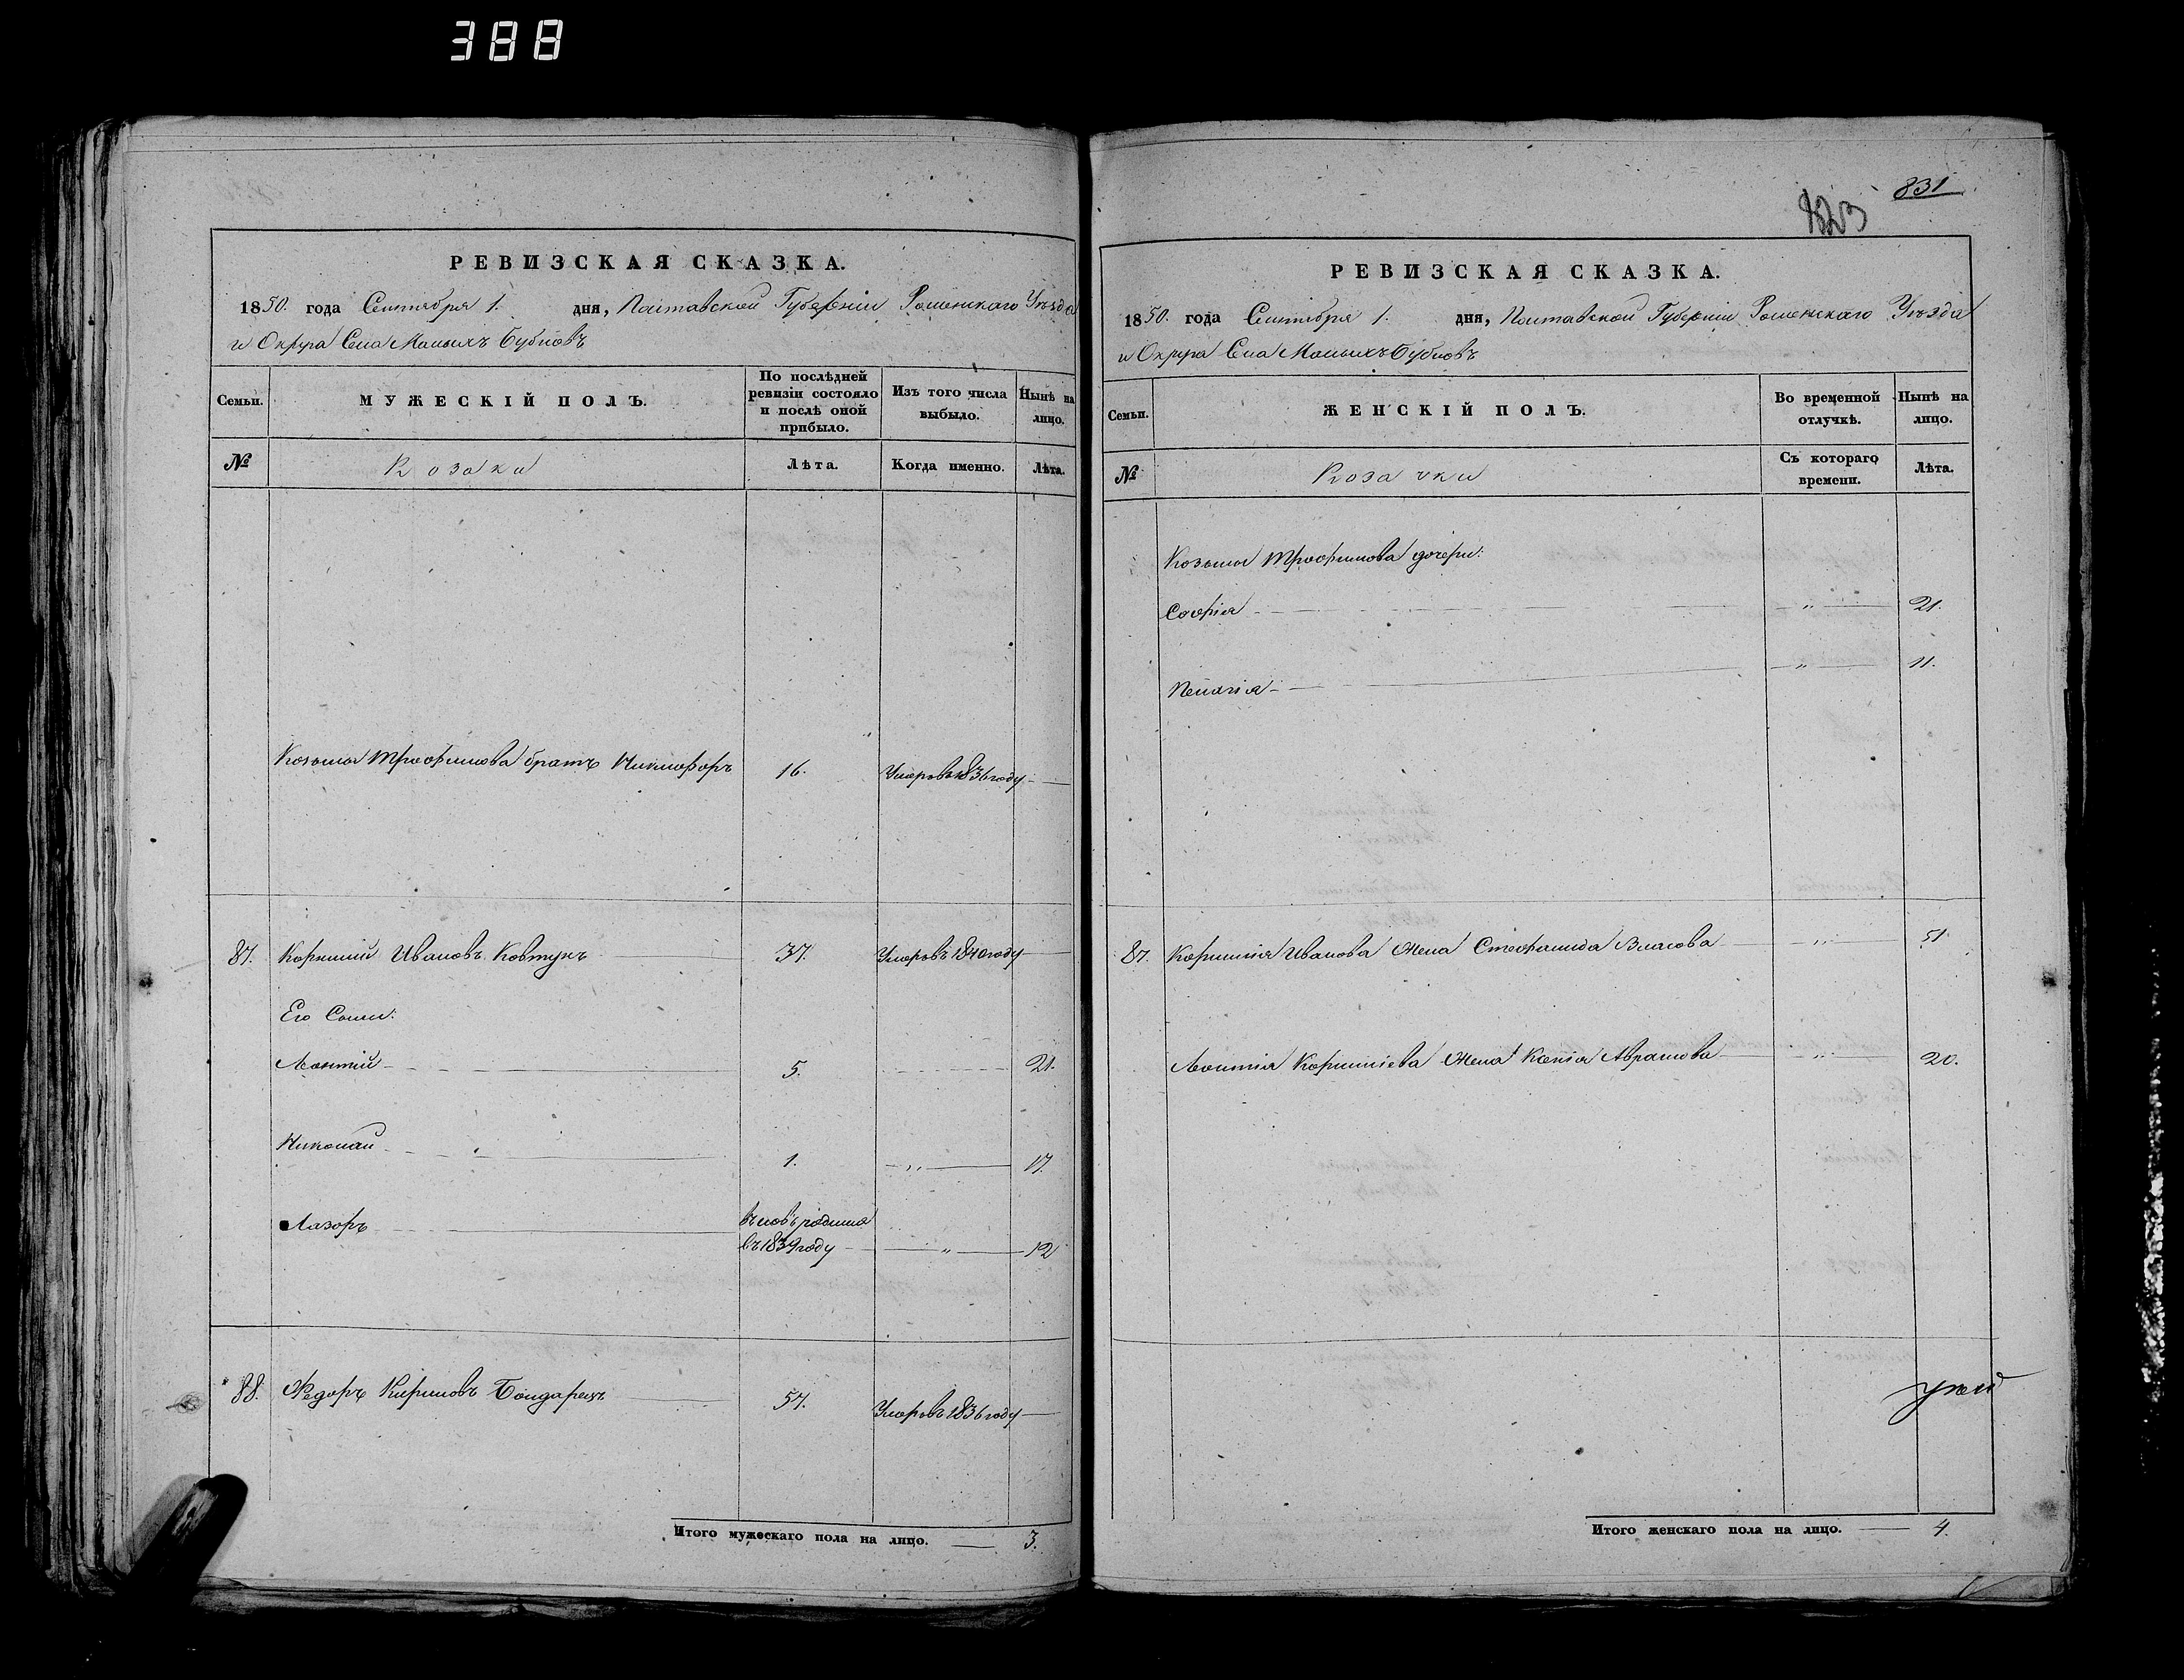 388
РЕВИЗСКАЯ СКАЗКА.
1850. года Сентября 1. дня, Полтавской Губерніи Роменскаго Уѣзда
и Округа Села Малыхъ Бубновъ
Семьи.
МУЖЕСКІЙ ПОЛЪ.
По послѣдней ревизіи состояло и послѣ оной прибыло.
Изъ того числа выбыло.
Нынѣ на лицо.
№
Козаки
Лѣта.
Когда именно.
Лѣта.
Козьмы Трофимова братъ Никифоръ 16. Умеръ въ 1836 году
87. Корнилій Ивановъ Ковтунъ 37. Умеръ въ 1840 году
Его Сыны:
Леонтій 5. 21.
Николай 1. „ 17.
Лазоръ вновь родился
въ 1839 году „ 12
88. Федоръ Кириловъ Бондарецъ 57. Умеръ въ 1836 году
Итого мужескаго пола на лицо. 3.
831
823
РЕВИЗСКАЯ СКАЗКА.
1850. года Сентября 1. дня, Полтавской Губерніи Роменскаго Уѣзда
и Округа Села Малыхъ Бубновъ
Семьи.
ЖЕНСКІЙ ПОЛЪ.
Во временной отлучкѣ.
Нынѣ на лицо.
№
Козачки
Съ котораго времени.
Лѣта.
Козьмы Трофимова дочери:
Софія „ 21.
Пелагія „ 11.
87. Корнилія Иванова Жена Стефанида Власова „ 51
Леонтія Корниліева Жена Ксенія Абрамова „ 20.
Итого женскаго пола на лицо. 4.